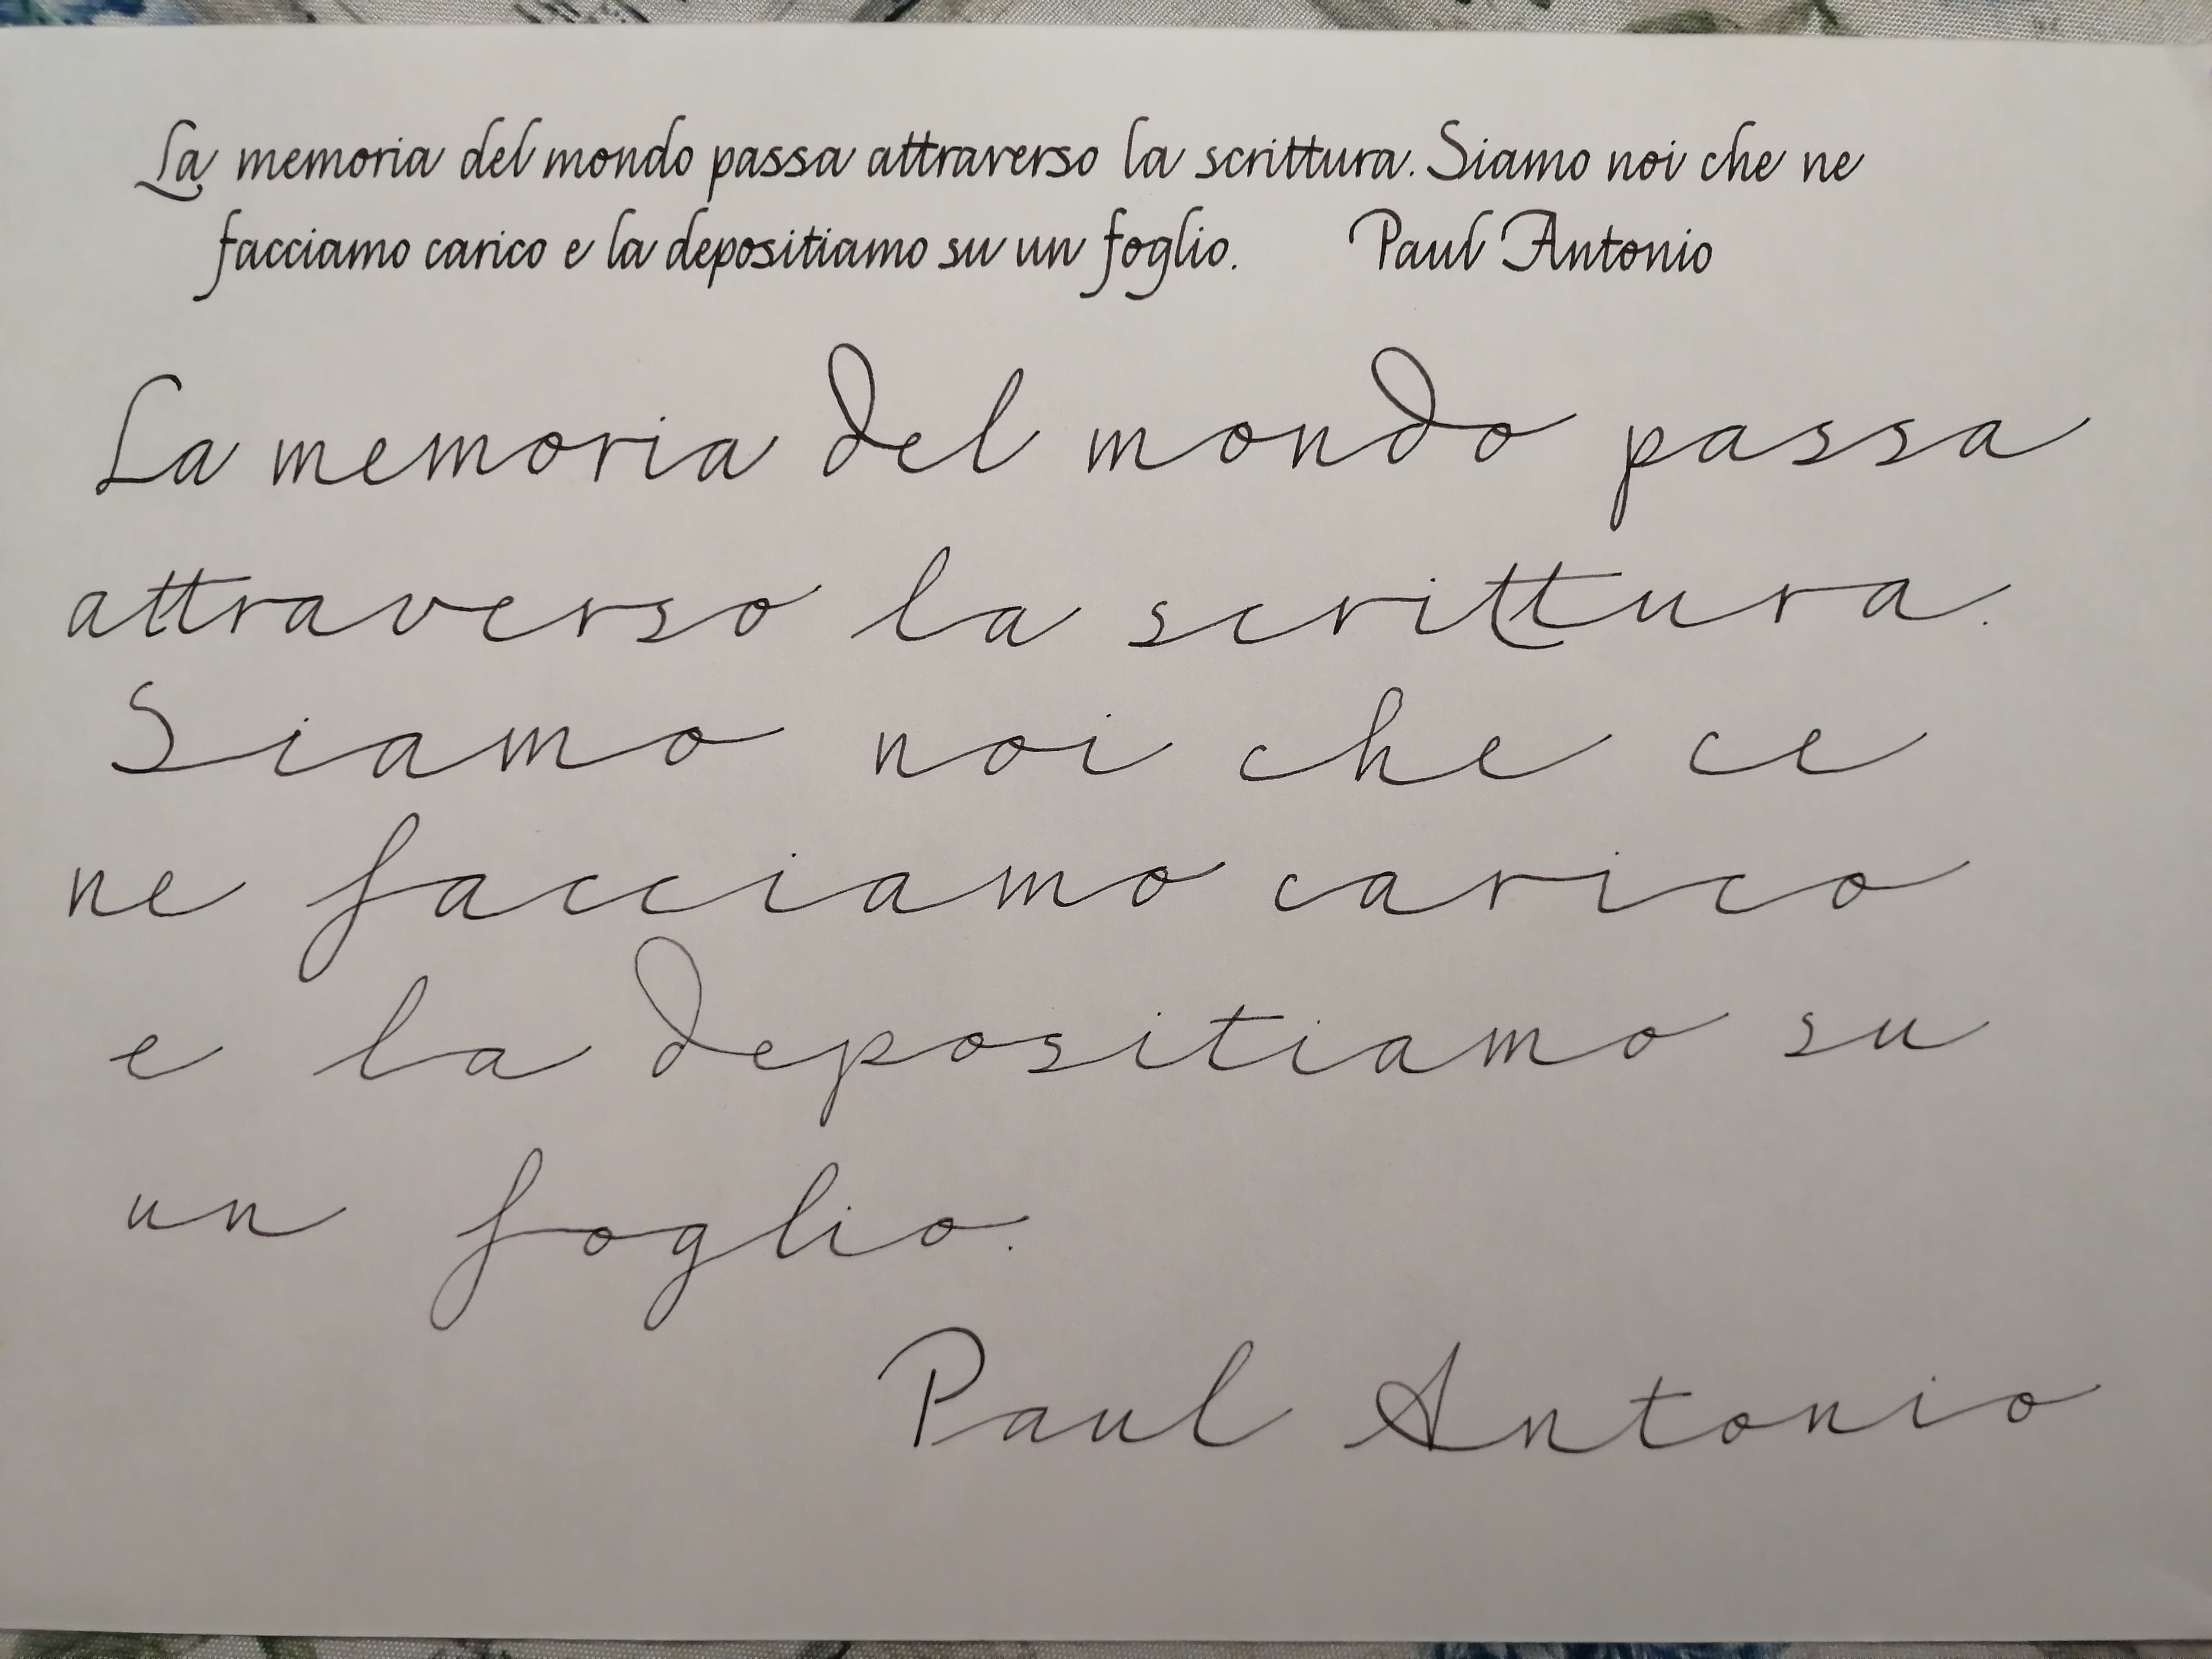 La memoria del mondo passa attraverso la scrittura. Siamo noi che ne
facciamo carico e la depositiamo su un foglio. Paul Antonio
La memoria del mondo passa
attraverso la scrittura.
Siamo noi che ce
ne facciamo carico
e la depositiamo su
un foglio.
Paul Antonio